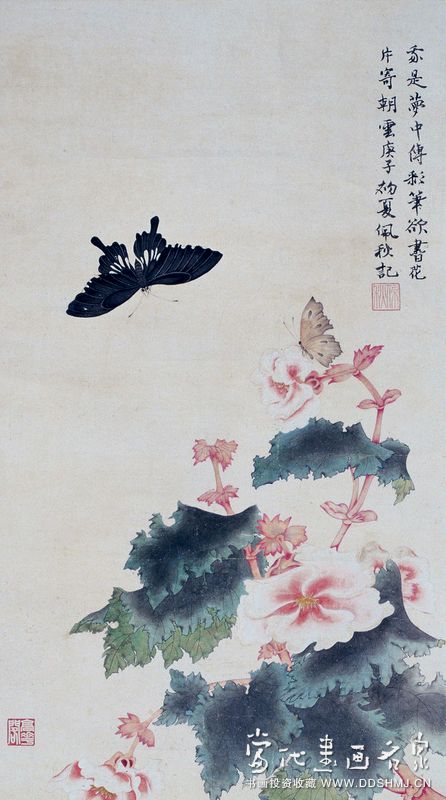 我是夢中傳彩筆欲書花
片寄朝雲庚子初夏佩秋記
當代書画名家
书画投资收藏 WWW.DDSHMJ.CN